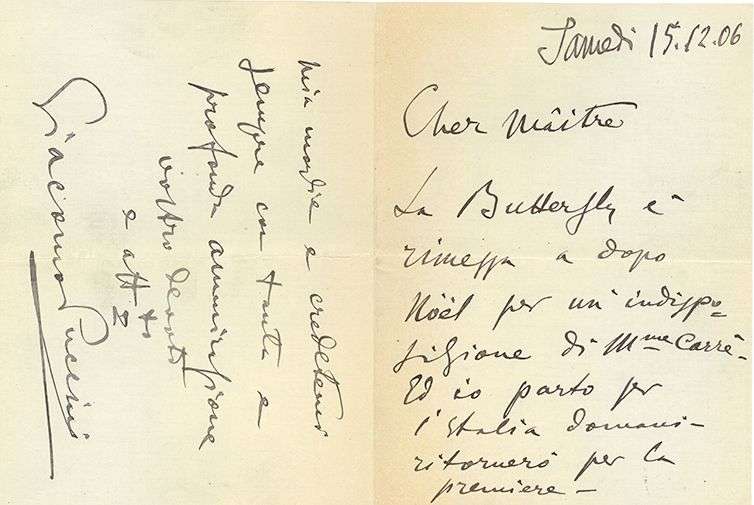 Samedi 15.12.06
Cher Mâitre
La Butterfly è
rimessa a dopo
Nöël per un' indispo-
sizione di Mme Carré-
Ed io parto per
l'Italia domani-
ritornerò per la
premiere-
mia moglie e credetemi
sempre con tanta e
profonda ammirazione
vostro devoto
e aff to
Giacomo Puccini